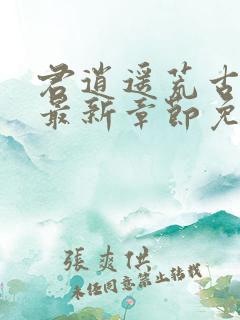 君逍遥荒古
最新章節免
張爽供
未经同意禁止转载